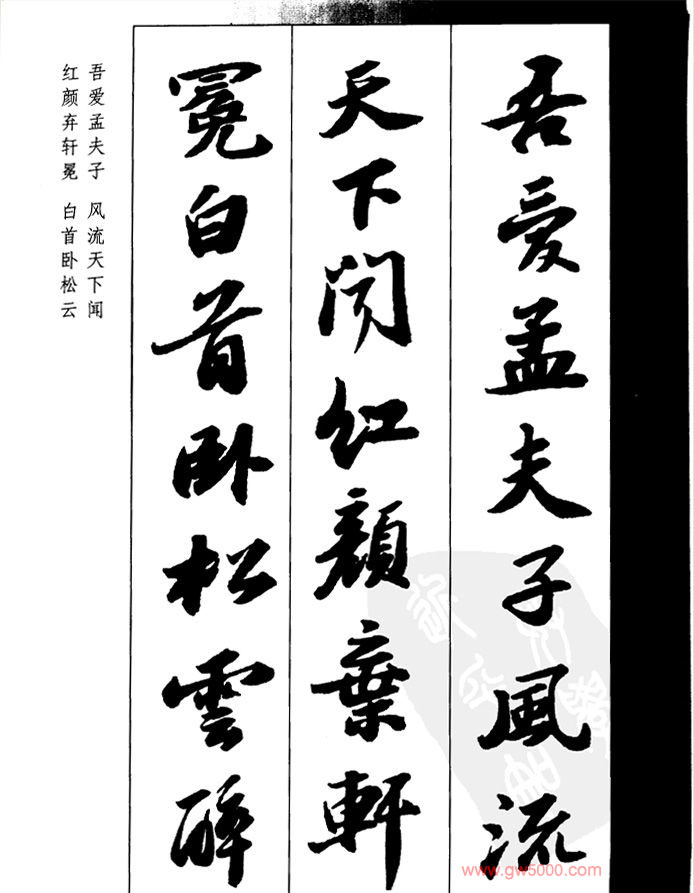 吾愛孟夫子風流
天下聞紅顏棄軒
冕白首卧松雲醉
吾爱孟夫子 风流天下闻
红颜弃轩冕 白首卧松云
www.gw5000.com